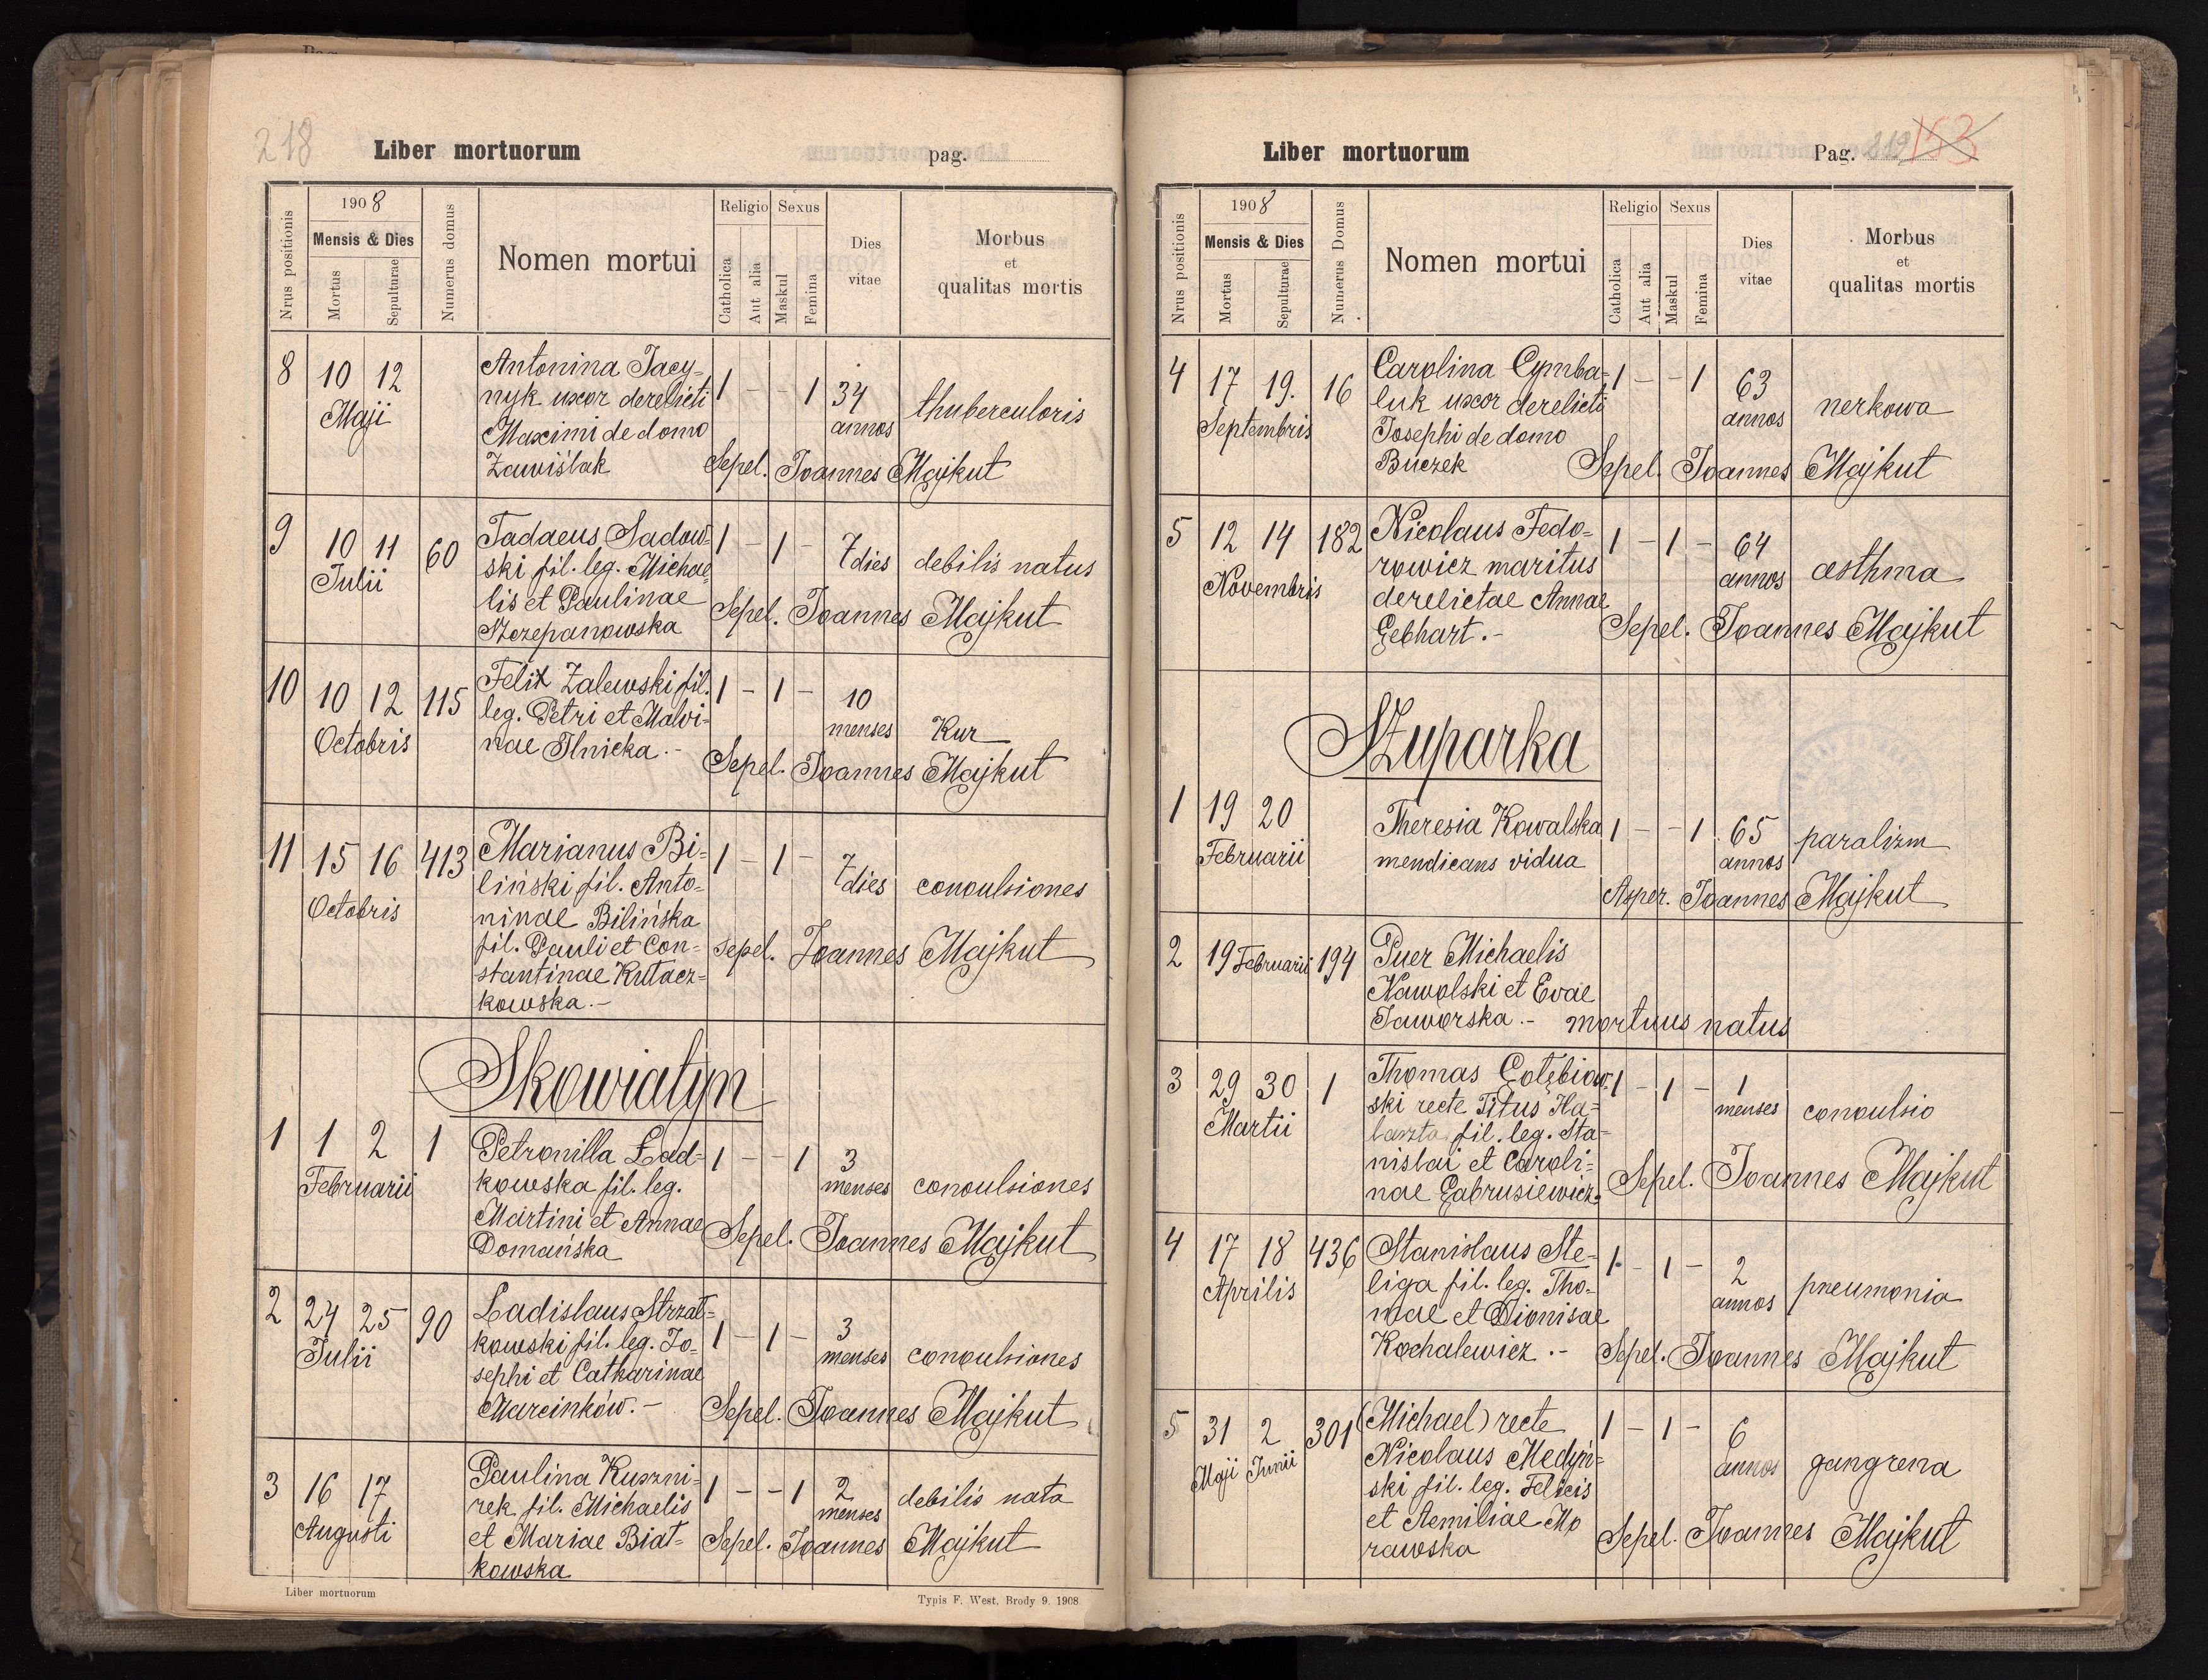 218
Liber mortuorum pag.
Nrus positionis
1908
Mensis & Dies
Mortus
Sepulturae
Numerus domus
Nomen mortui
Religio
Catholica
Aut alia
Sexus
Maskul
Femina
Dies
vitae
Morbus
et
qualitas mortis
8 10 12 Antonina Jacy-
Maji nyk uxor derelicti 1 - - 1 34 annos thuberculoris
Maximi de domo
Zawiślak Sepel. Joannes Majkut
9 10 11 60 Tadaeus Sadow-
Julii ski fil. leg. Michae- 1 - 1 - 7 dies debilis natus
lis et Paulinae
Szczepanowska Sepel. Joannes Majkut
10 10 12 115 Felix Zalewski fil. 1 - 1 - 10
Octobris leg. Petri et Malvi- menses Kur
nae Ilnicka.- Sepel. Joannes Majkut
11 15 16 413 Marianus Bi- 1 - 1 -
Octobris liński fil. Anto- 7 dies convulsiones
ninae Bilińska
fil. Pauli et Con- sepel. Joannes Majkut
stantinae Krutacz-
kowska.-
Skowiatyn
1 1 2 1 Petronilla Lad- 1 - - 1 3
Februarii kowska fil. leg. menses convulsiones
Martini et Annae
Domańska Sepel. Joannes Majkut
2 24 25 90 Ladislaus Strzał-
Julii kowski fil. leg. Jo- 1 - 1 - 3 menses convulsiones
sephi et Catharinae
Marcinków.- Sepel. Joannes Majkut
3 16 17 Paulina Kuszni-
Augusti rek fil. Michaelis 1 - - 1 2 menses debilis nata
et Mariae Biał- Sepel. Joannes Majkut
kowska
Liber mortuorum Typis F. West, Brody 9. 1908
Liber mortuorum Pag. 219 153
Nrus positionis
1908
Mensis & Dies
Mortus
Sepulturae
Numerus Domus
Nomen mortui
Religio
Catholica
Aut alia
Sexus
Maskul
Femina
Dies
vitae
Morbus
et
qualitas mortis
4 17 19. 16 Carolina Cymba- 1 - - 1 63
Septembris luk uxor derelicti annos nerkowa
Josephi de domo
Buczek Sepel. Joannes Majkut
5 12 14 182 Nicolaus Fedo- 1 - 1 - 64
Novembris rowicz maritus annos asthma
derelictae Annae
Gebhart.- Sepel. Joannes Majkut
Szuparka
1 19 20 Theresia Kowalska 1 - - 1 65
Februarii mendicans vidua annos paralizm
Asper. Joannes Majkut
2 19 Februarii 194 Puer Michaelis
Nawolski et Evae
Jaworska.- mortuus natus
3 29 30 1 Thomas Gołębiow- 1 - 1 - 1
Martii ski recte Titus Ha- menses convulsio
łaszta fil. leg. Sta-
nislai et Caroli-
nae Gabrusiewicz- Sepel. Joannes Majkut
4 17 18 436 Stanislaus Ste- 1 - 1 - 2
Aprilis liga fil. leg. Tho- annos pneumonia
mae et Dionisae
Kochalewicz.- Sepel. Joannes Majkut
5 31 2 301 (Michael) recte 1 - 1 - 6
Maji Junii Nicolaus Medyń- annos gangrena
ski fil. leg. Felicis
et Aemiliae Mo
rawska Sepel. Joannes Majkut